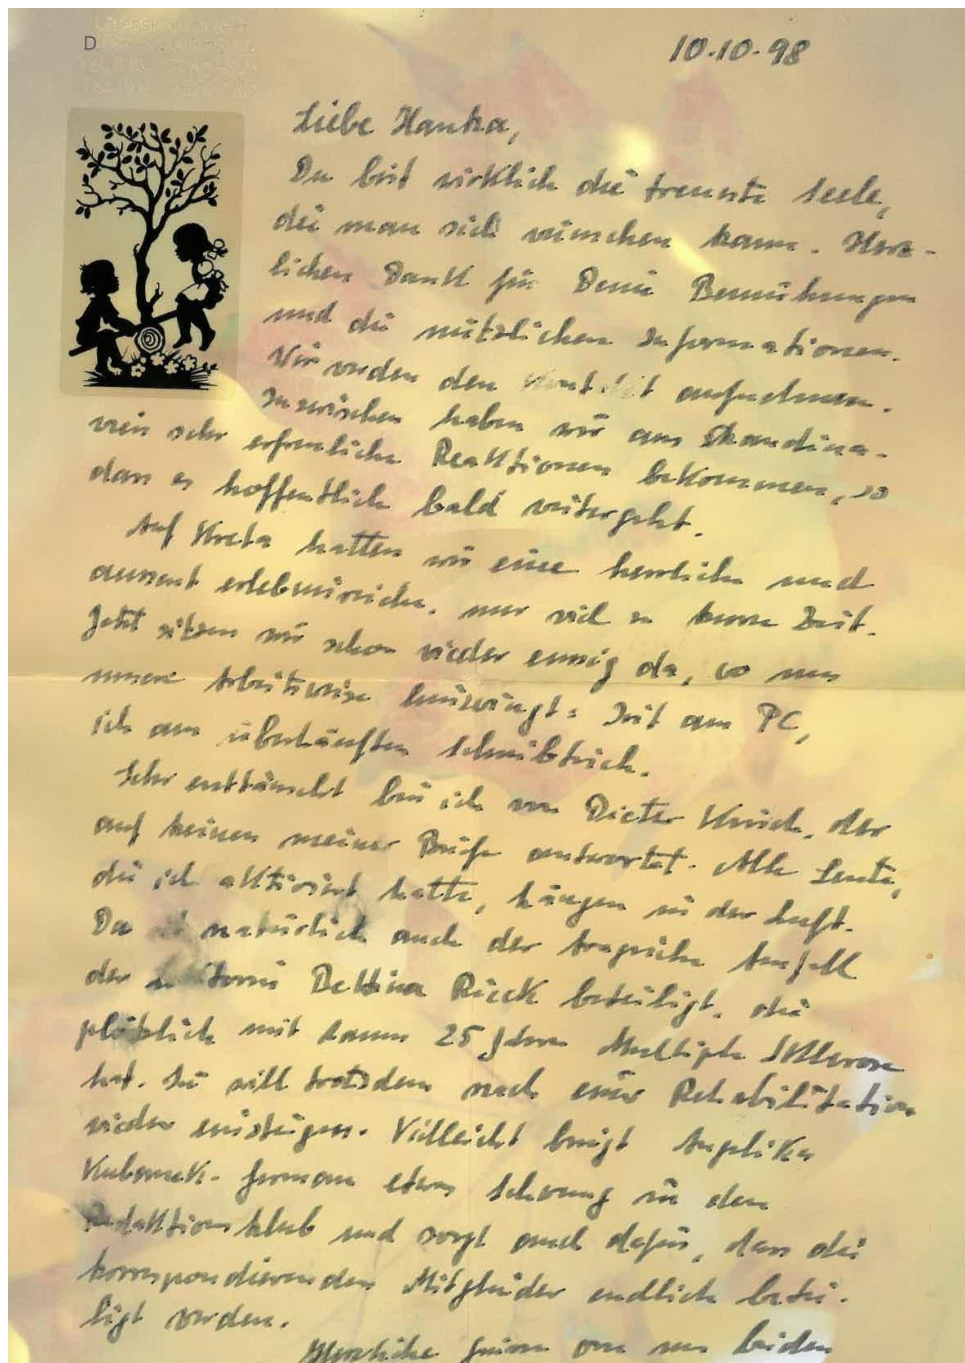 D
10.10.98
Liebe Hanka,
Du bist wirklich die treueste Seele,
die man sich wünschen kann. Herz-
lichen Dank für Deine Bemühungen
und die nützlichen Informationen.
Wir werden den Kontakt aufnehmen.
Inzwischen haben wir aus Skandina-
vien sehr erfreuliche Reaktionen bekommen, so
dass es hoffentlich bald weitergeht.
Auf Kreta hatten wir eine herrliche und
äusserst erlebnisreiche, nur viel zu kurze Zeit.
Jetzt sitzen wir schon wieder emsig da, wo uns
unsere Arbeitsweise hinzwingt: am PC,
ich am überhäuften Schreibtisch.
Sehr enttäuscht bin ich von Dieter, der
auf keinen meiner Briefe antwortet. Alle Leute,
die ich aktiviert hatte, hängen in der Luft.
Da ist natürlich auch der tragische Ausfall
der Bettina Rieck beteiligt, die
plötzlich mit kaum 25 Jahren Multiple Sklerose
hat. Sie will trotzdem nach einer Rehabilitation
wieder einsteigen. Vielleicht bringt Angelika
Kubanek-German etwas Schwung in den
Redaktionsklub und sorgt auch dafür, dass die
korrespondierenden Mitglieder endlich betei-
ligt werden.
Herzliche Grüsse von uns beiden